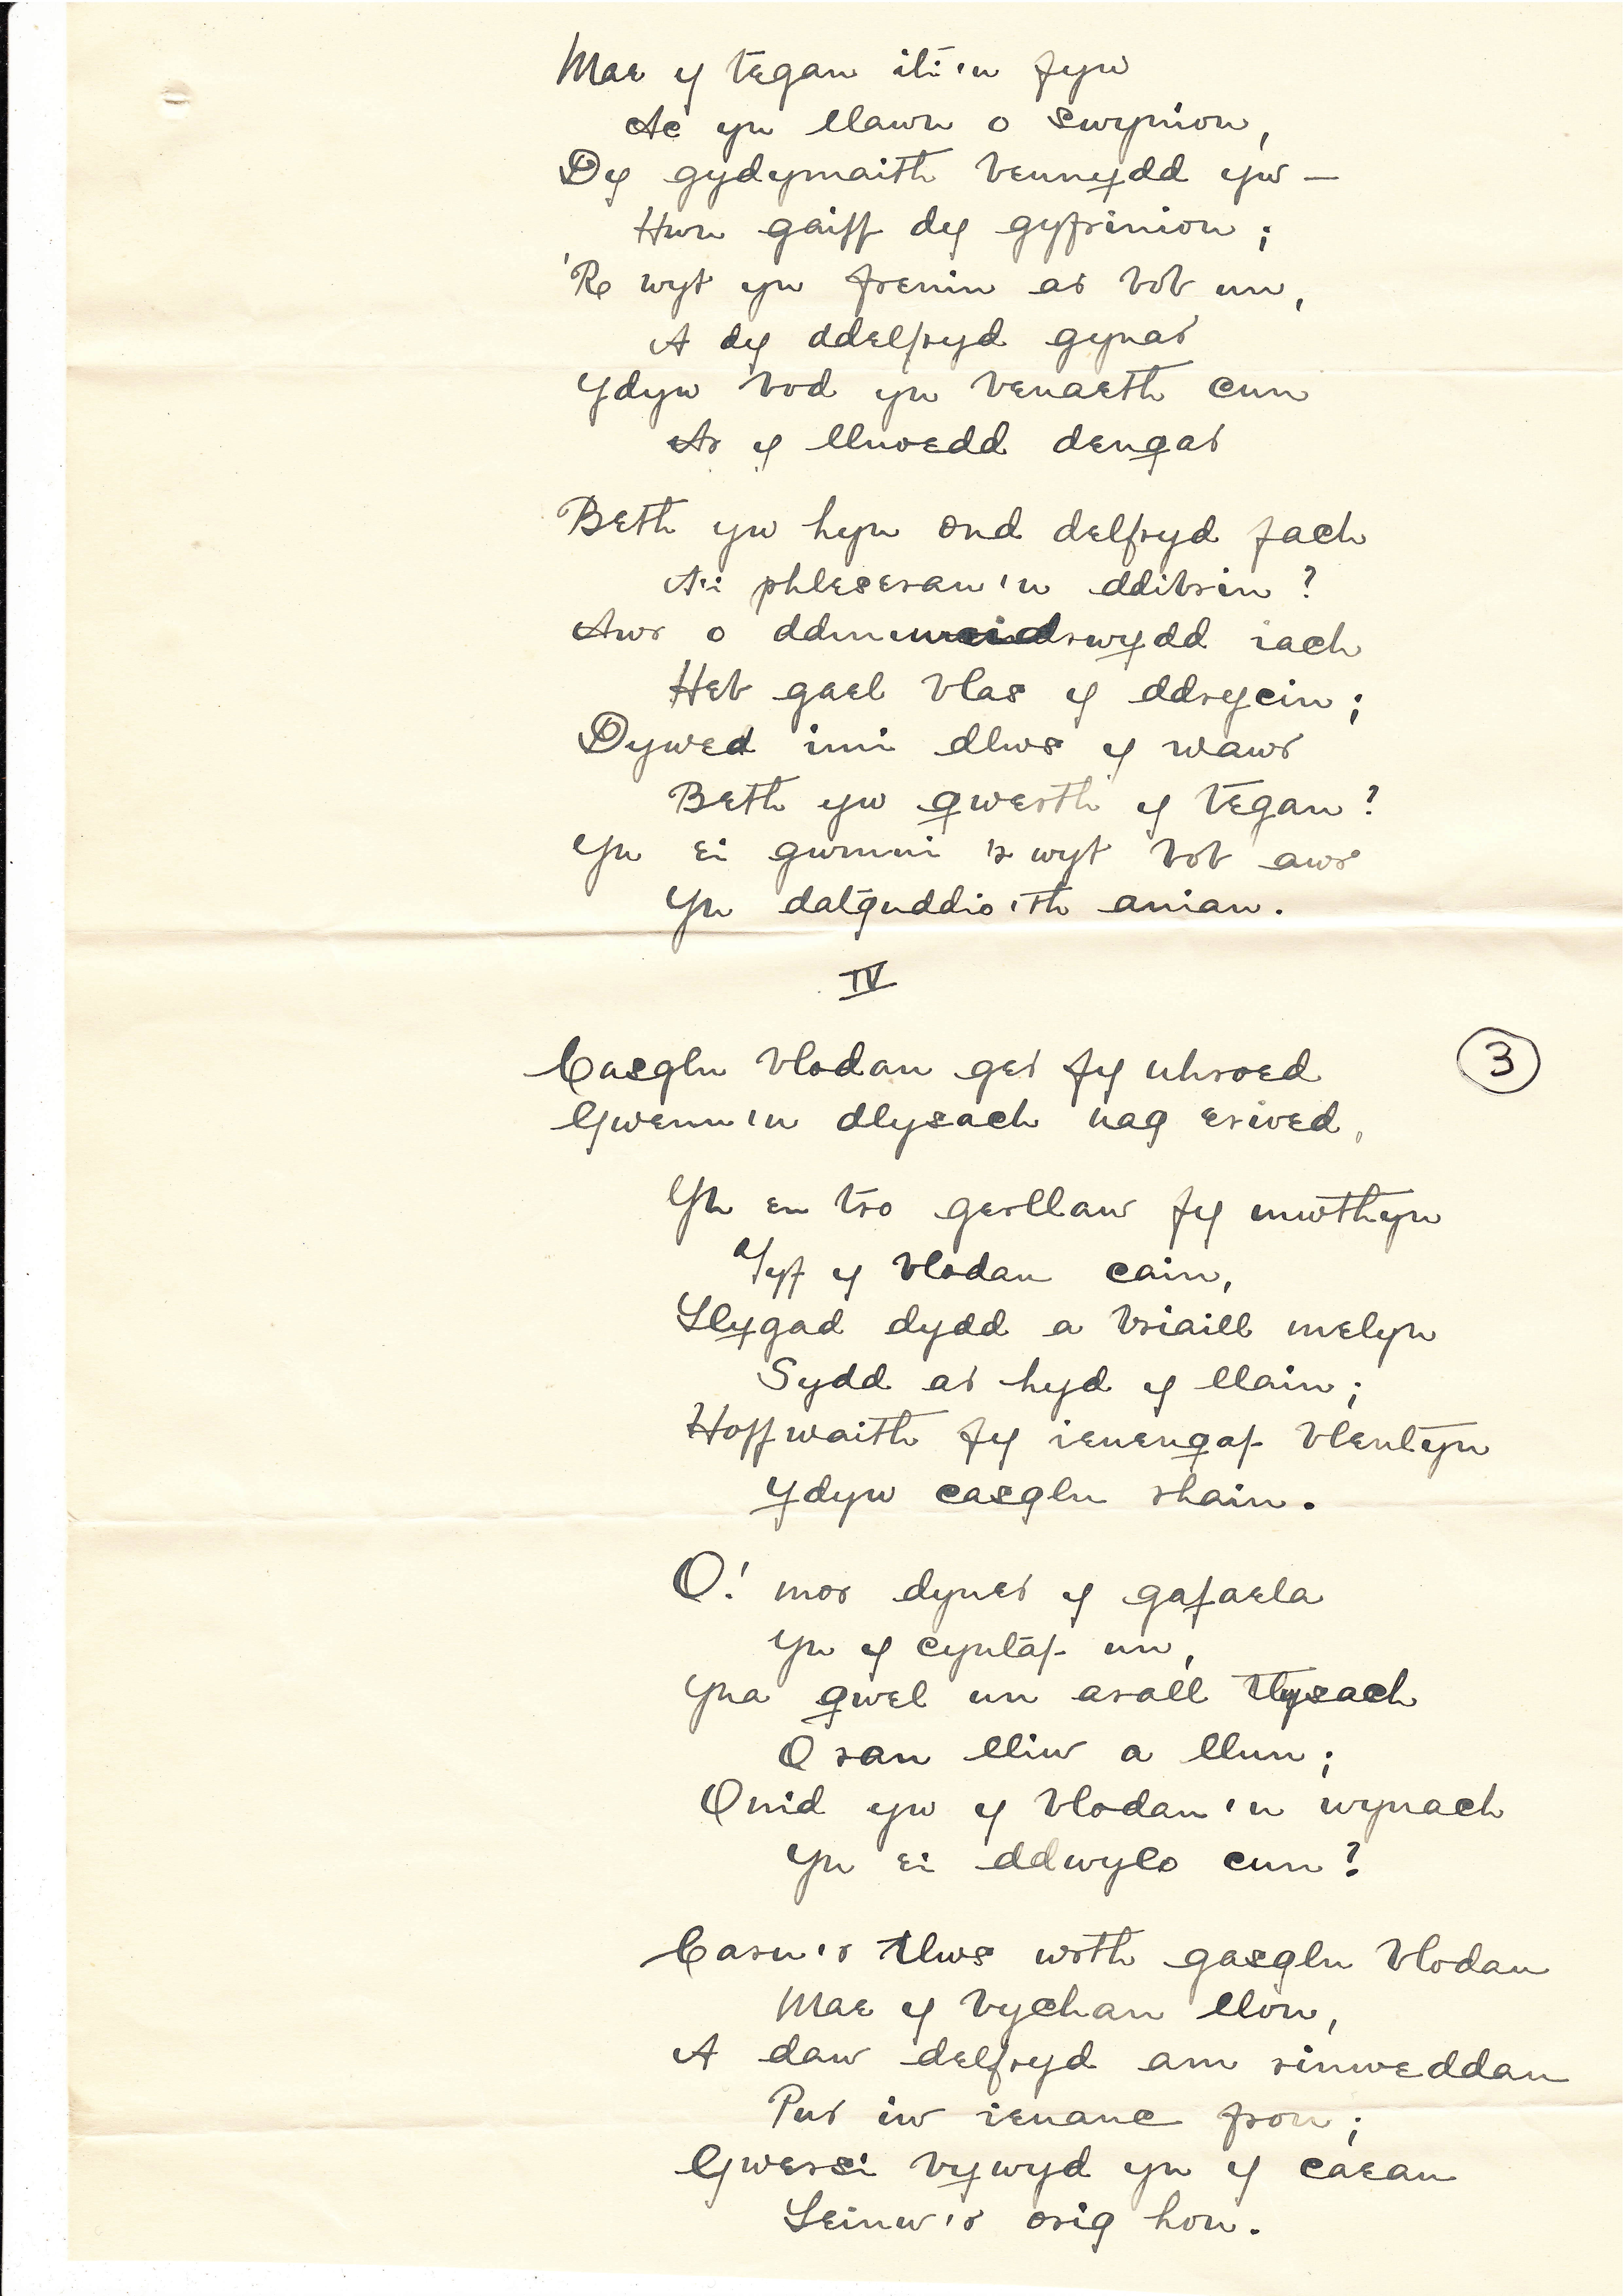 Mae y tegan iti'n fyw
Ac yn llawn o swynion,
Dy gydymaith bennydd yw —
Hwn gaiff dy gyfrinion;
'Re wyt yn frenin ar bob un,
A dy ddelfryd gynar
Ydyw bod yn benaeth cun
Ar y lluoedd dengar
Beth yw hyn ond delfryd fach
A'i phleseran'n ddibrin?
Awr o ddireidi iach
Heb gael blas y ddrycin;
Dywed imi dlws y wawr
Beth yw gwerth y tegan?
Yn ei gwmni 'r wyt bob awr
Yn datguddio'th anian.
IV
3
Casglu blodau ger fy nhroed
Gwenu'n dlysach nag erioed,
Yn eu tro gerllaw fy mwthyn
Tyf y blodau cain,
Llygad dydd a briaill melyn
Sydd ar hyd y llain;
Hoffwaith fy ieuengaf blentyn
Ydyw casglu rhain.
O! mor dyner y gafaela
Yn y cyntaf un,
Yna gwel un arall tlysach
O ran lliw a llun;
Onid yw y blodau'n wynach
Yn ei ddwylo cun?
Caru'r tlws wrth gasglu blodau
Mae y bychan llon,
A daw delfryd am rinweddau
Pur iw ieuanc fron;
Gwersi bywyd yn y caeau
Leinw'r orig hon.